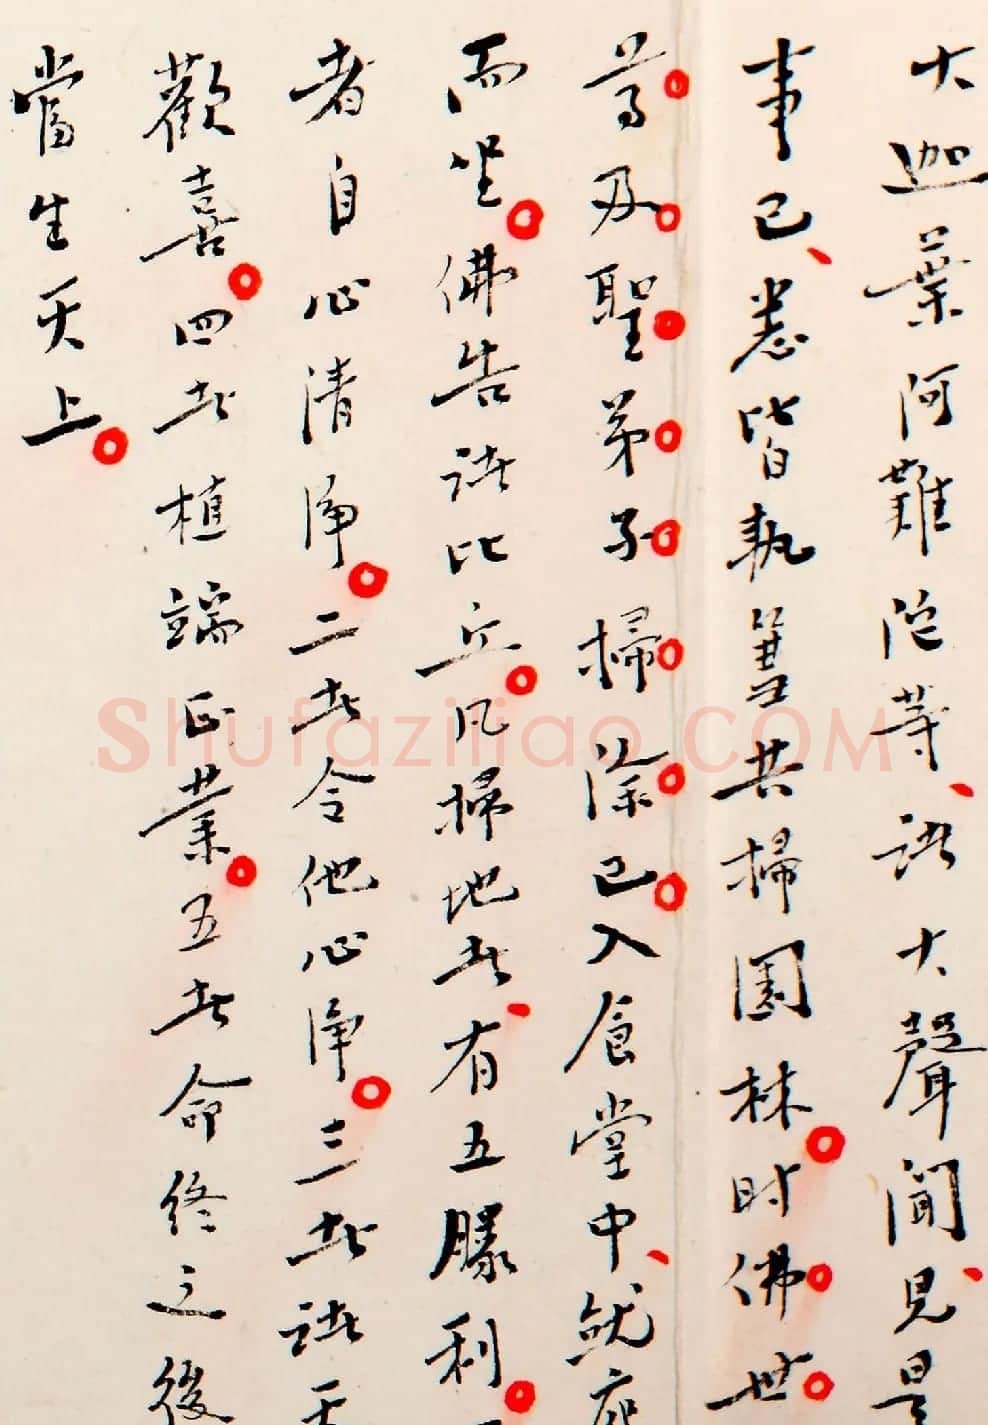 大迦葉阿難陀等諸大聲聞見是
事已悉皆執篲共掃園林時佛世
尊及聖弟子掃除已入食堂中就座
而坐佛告諸比丘凡掃地者有五勝利
者自心清淨二者令他心淨三者諸天
歡喜四者植端正業五者命終之後
當生天上
Shufaziliao.COM